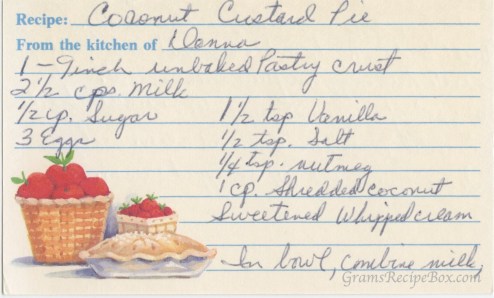 Recipe: Coconut Custard Pie
From the kitchen of Donna
1 - 9 inch unbaked Pastry crust
2 1/2 cps. Milk
1/2 cp. Sugar
3 Eggs
1 1/2 tsp Vanilla
1/2 tsp. Salt
1/4 tsp. nutmeg
1 cp. Shredded coconut
Sweetened Whipped cream
In bowl, combine milk,
GramsRecipeBox.com